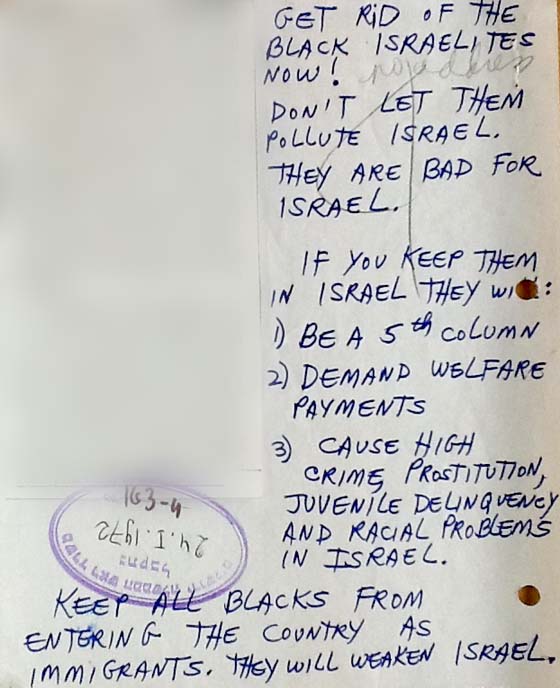 GET RID OF THE
BLACK ISRAELITES
NOW!
no address
DON'T LET THEM
POLLUTE ISRAEL.
THEY ARE BAD FOR
ISRAEL.
IF YOU KEEP THEM
IN ISRAEL THEY WILL:
1) BE A 5th COLUMN
2) DEMAND WELFARE
PAYMENTS
3) CAUSE HIGH
CRIME, PROSTITUTION,
JUVENILE DELINQUENCY
AND RACIAL PROBLEMS
IN ISRAEL.
163-4
24.I.1972
KEEP ALL BLACKS FROM
ENTERING THE COUNTRY AS
IMMIGRANTS. THEY WILL WEAKEN ISRAEL.